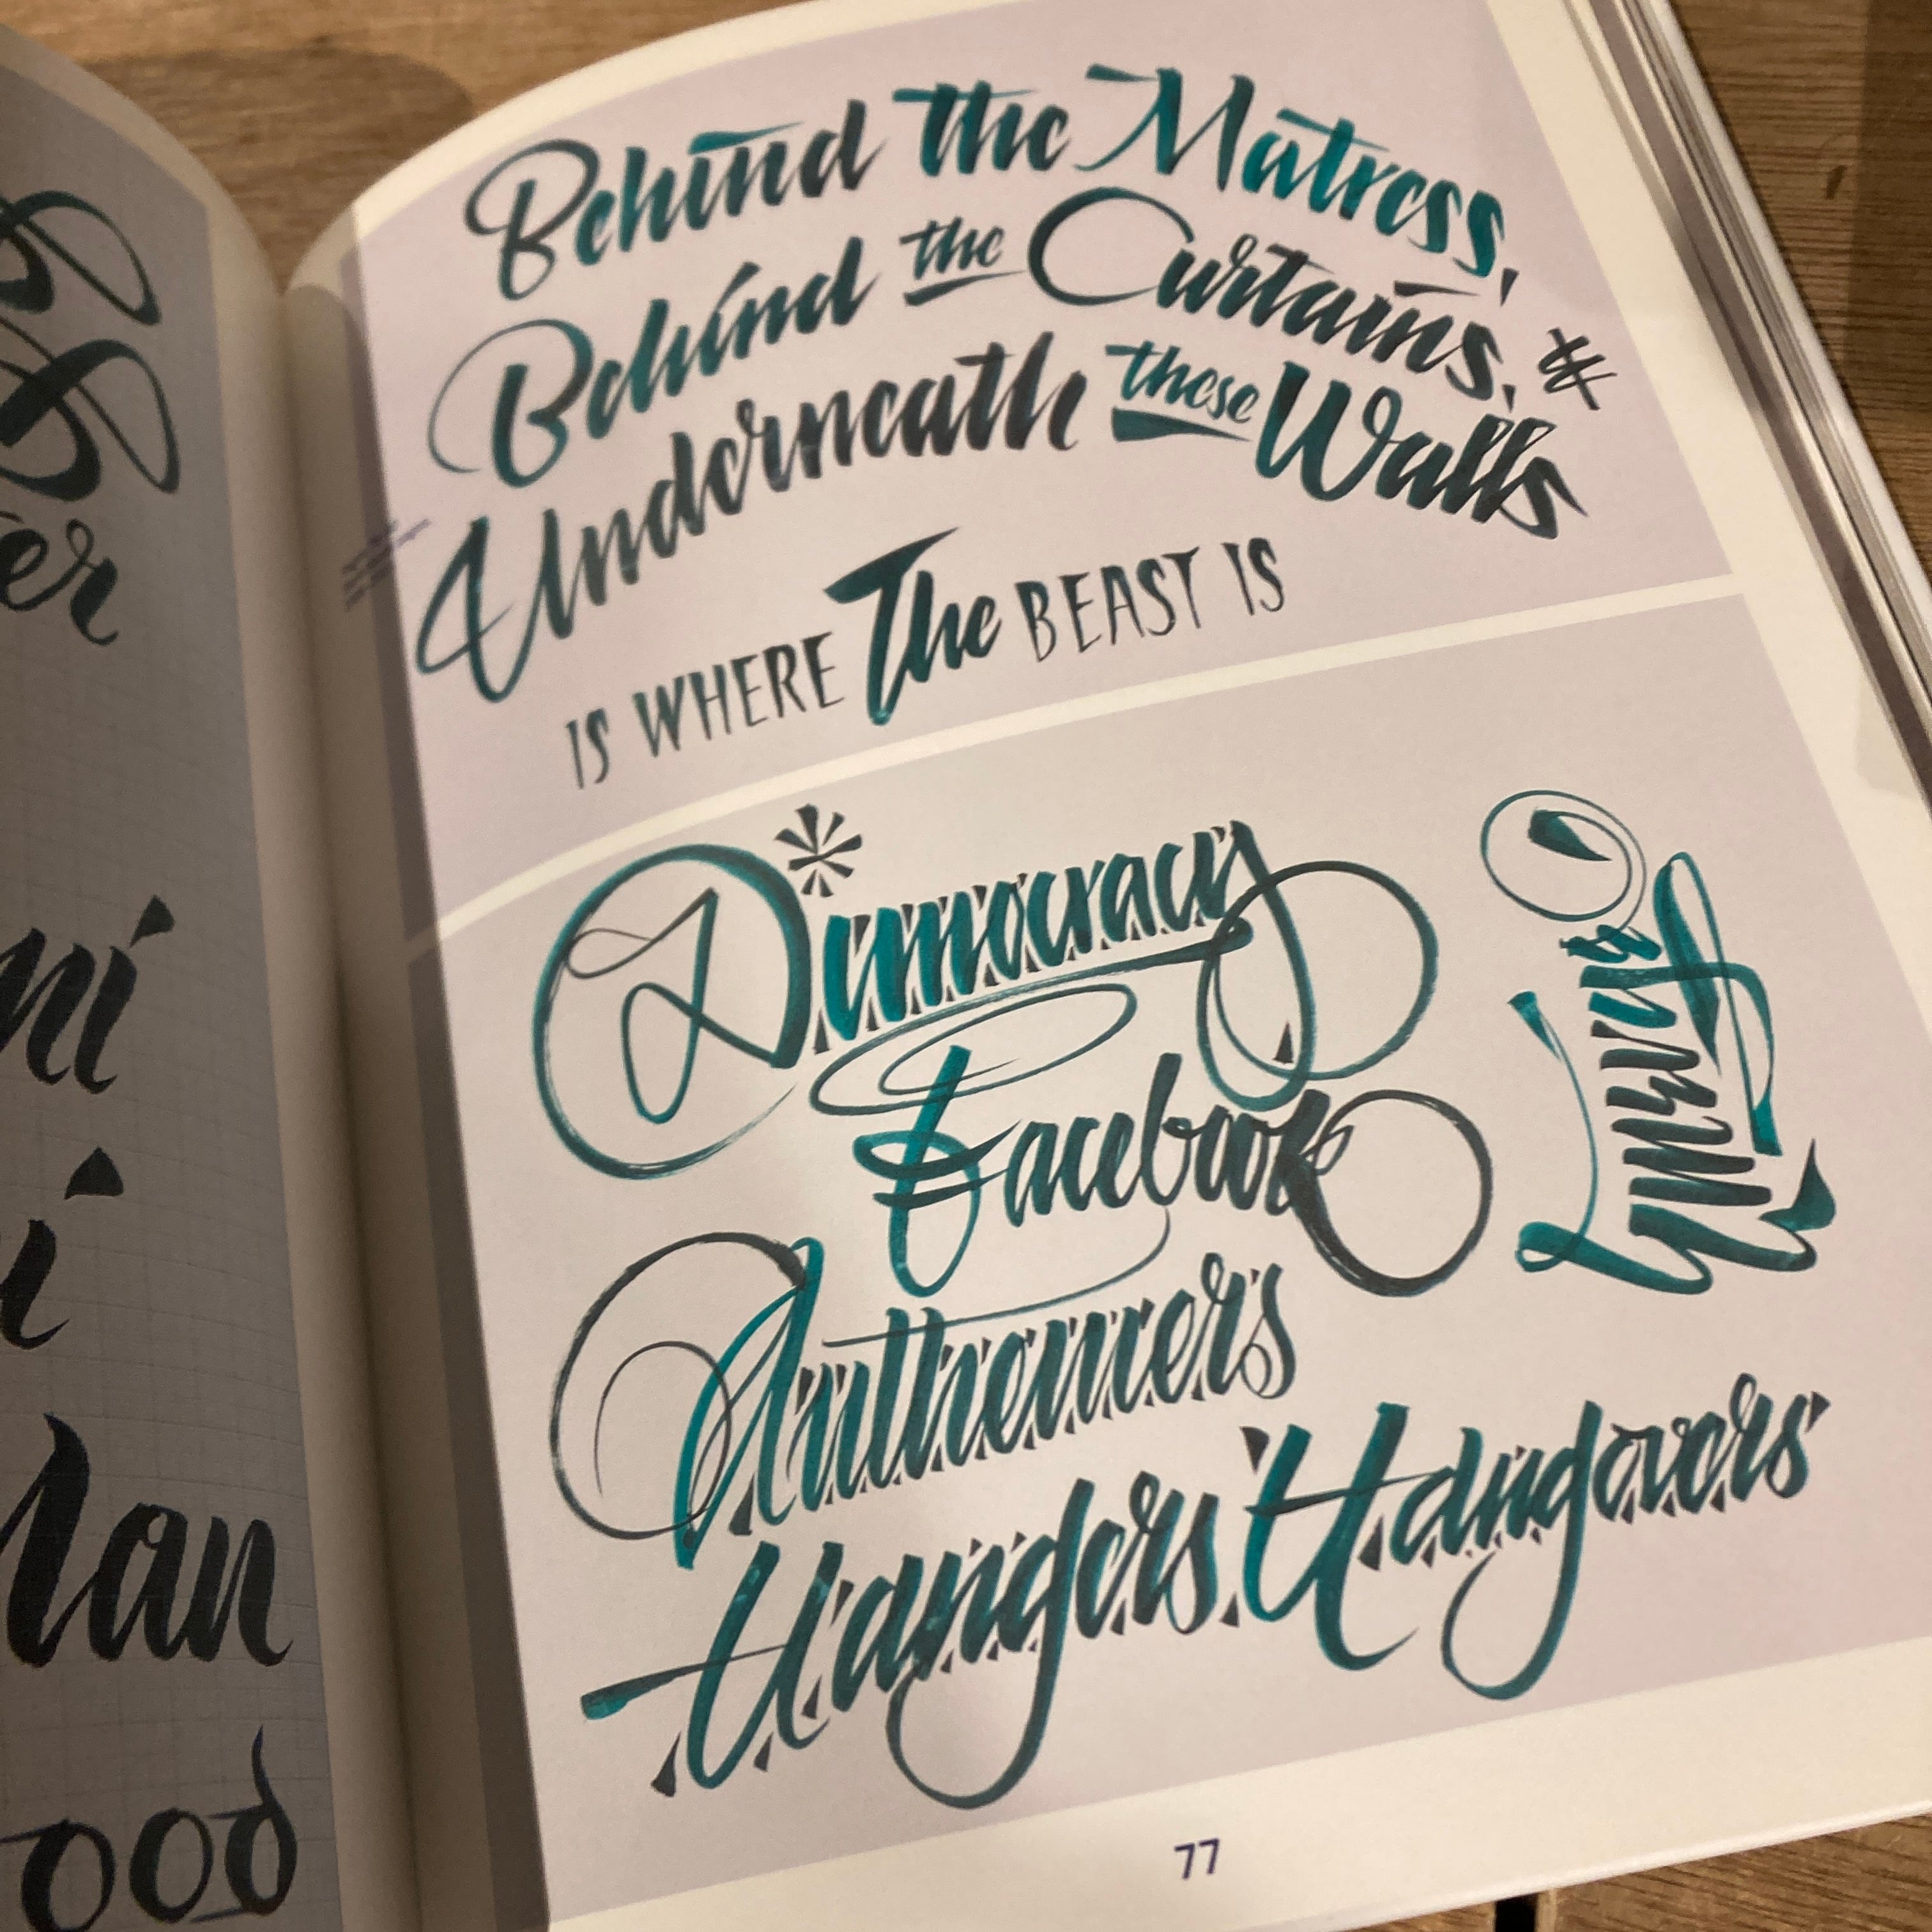 er
ni
i
lan
ood
Behind the Matress,
Behind the Curtains, &
Underneath these Walls
IS WHERE The BEAST IS
Dimocracy
Facebook
Hangers Hangovers
77